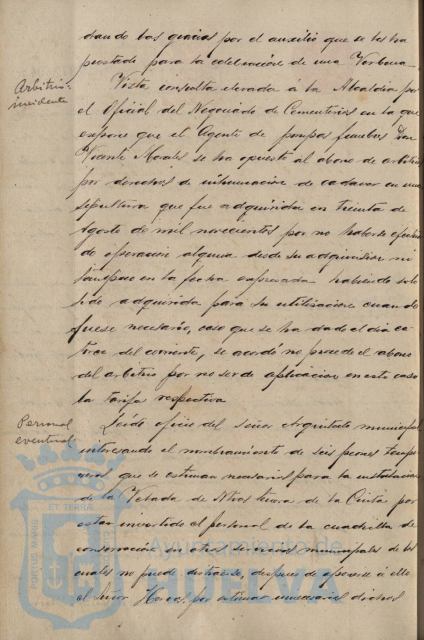 dando las gracias por el auxilio que se les ha
prestado para la celebración de una Verbena.
Arbitrio:
incidente
Vista consulta elevada á la Alcaldia por
el Oficial del Negociado de Cementerios en la que
expone que el Agente de pompas fúnebres Don
Vicente Morales se ha opuesto al abono de arbitrio
por derechos de inhumacion de cadaver en una
sepultura que fue adquirida en treinta de
Agosto de mil novecientos por no haberse efectua
do operacion alguna desde su adquisicion ni
tampoco en la fecha expresada habiendo solo
sido adquirida para su utilizacion cuando
fuese necesario, caso que se ha dado el dia ca-
torce del corriente, se acordó no procede el abono
del arbitrio por no ser de aplicacion en este caso
la tarifa respectiva.
Personal
eventual
Leido oficio del Señor Arquitecto municipal
interesando el nombramiento de seis peones tempo
reros que se estiman necesarios para la instalacion
de la Velada de Ntra. Señora de la Cinta por
estar invertido el personal de la cuadrilla de
conservacion en otros servicios municipales de los
cuales no puede distraerse, despues de oponerse á ello
el Señor por estimar innecesarios dichos
PORTUS MARIS ET TERRÆ
Ayuntamiento de
HUELVA